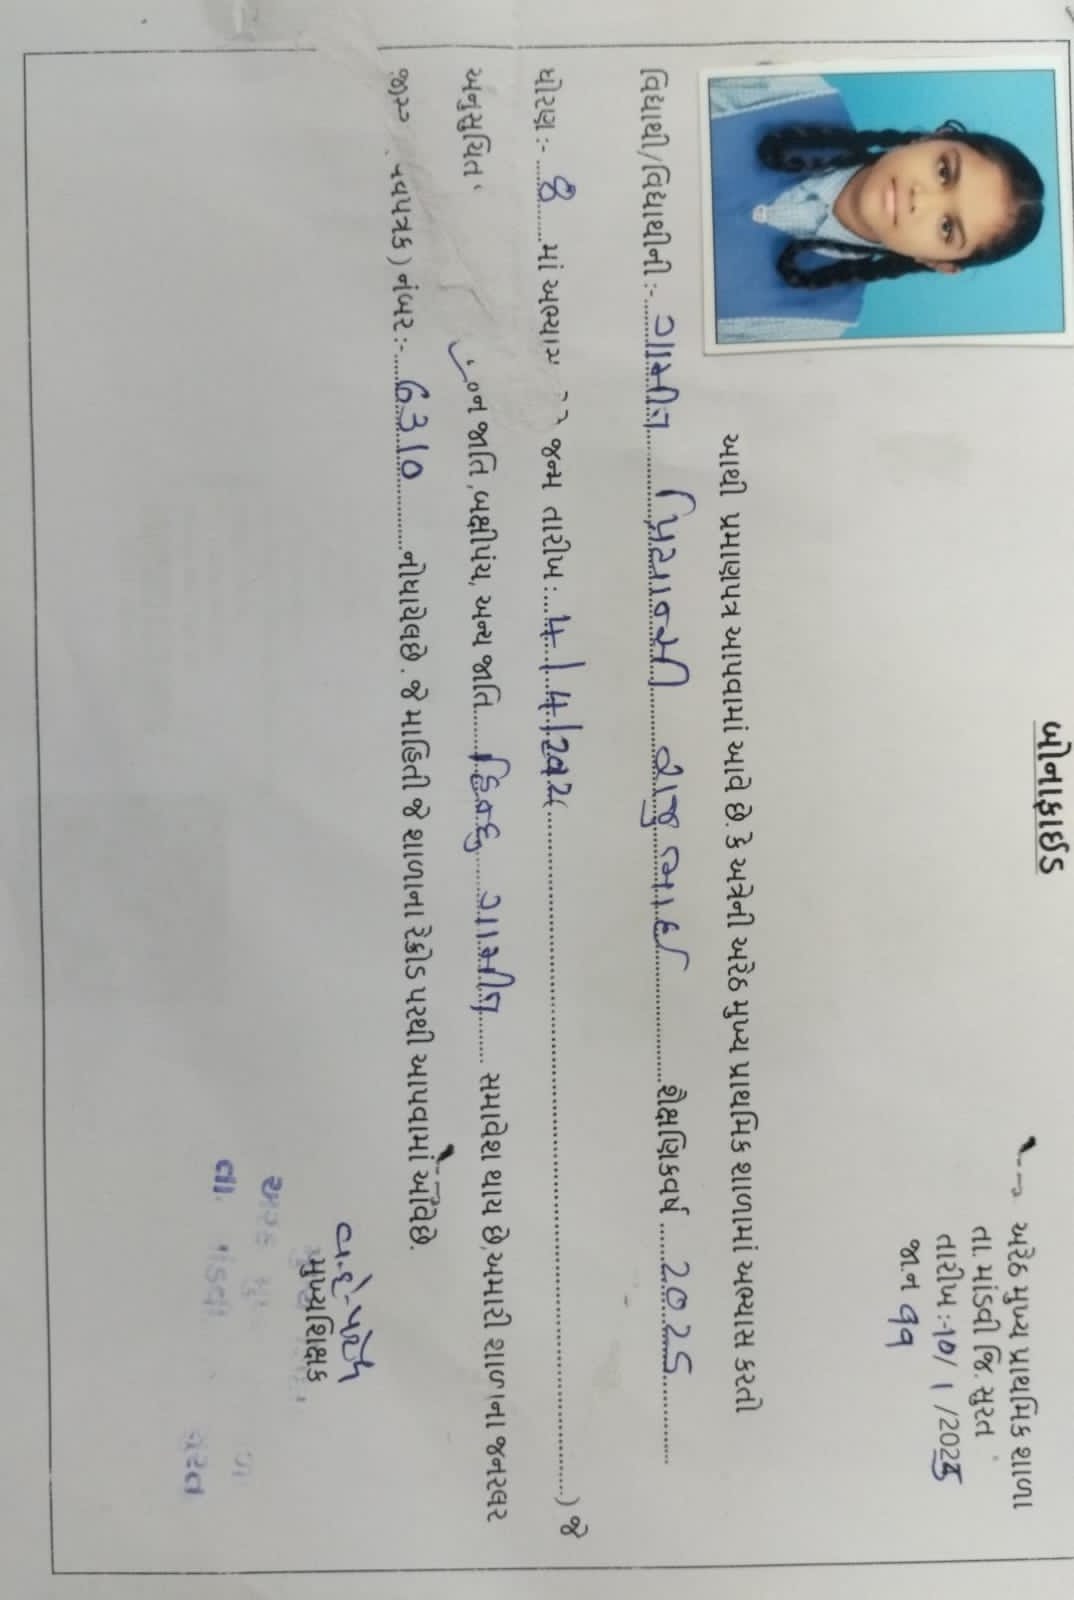 બોનાફાઈડ
અરેઠ મુખ્ય પ્રાથમિક શાળા
તા. માંડવી જિ. સુરત
તારીખ:-૧૦/ 1 /2025
જા.ન ૧૧
આથી પ્રમાણપત્ર આપવામાં આવે છે. કે અત્રેની અરેઠ મુખ્ય પ્રાથમિક શાળામાં અભ્યાસ કરતો
વિદ્યાથી/વિદ્યાથીની:- ગામીત પ્રિયાન્સી રાજુભાઈ શૈક્ષણિકવર્ષ 2025
ધોરણ:- 8 માં અભ્યાસ જન્મ તારીખ: 4/4/2012 ) જે
અનુસુચિત જન જાતિ ,બક્ષીપંચ, અન્ય જાતિ હિન્દુ ગામીત સમાવેશ થાય છે,અમારી શાળાના જનરલર
પત્રક) નંબર:- 6310 નોધાયેલછે. જે માહિતી જે શાળાના રેકોડ પરથી આપવામાં આવેછે.
મુખ્યશિક્ષક
તા.
સુરત